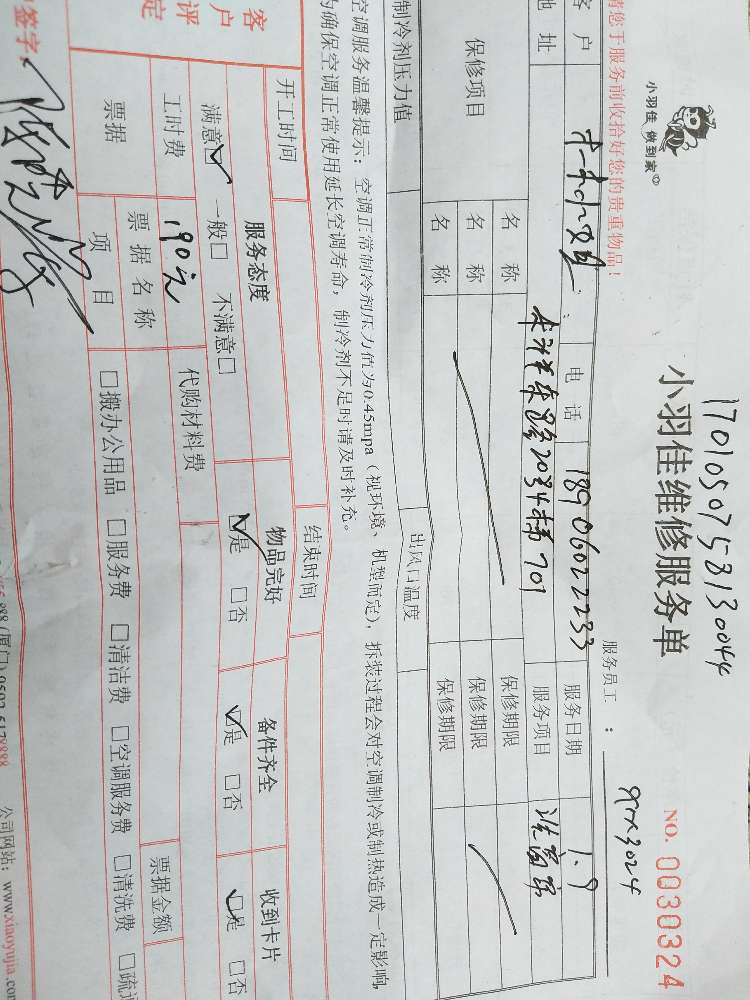 小羽佳 做到家
1701050758130044
小羽佳维修服务单
NO. 0030324
请您于服务前收拾好您的贵重物品！
服务员工：
3024
客户
电话 18906022233
服务日期 1.9
地址
203
701
服务项目 洗窗帘
保修项目
名称
保修期限
名称
保修期限
名称
保修期限
制冷剂压力值
出风口温度
空调服务温馨提示：空调正常制冷剂压力值为0.45mpa（视环境、机型而定），拆装过程会对空调制冷或制热造成一定影响，
为确保空调正常使用延长空调寿命，制冷剂不足时请及时补充。
开工时间
结束时间
客户评定
服务态度
物品完好
备件齐全
收到卡片
满意☑ 一般□ 不满意□
☑是 □否
☑是 □否
☑是 □否
工时费 190元
代购材料费
票据
票据名称
票据金额
项目
□搬办公用品 □服务费 □清洁费 □空调服务费 □清洗费
签字
公司网站：www.xiaoyujia.com